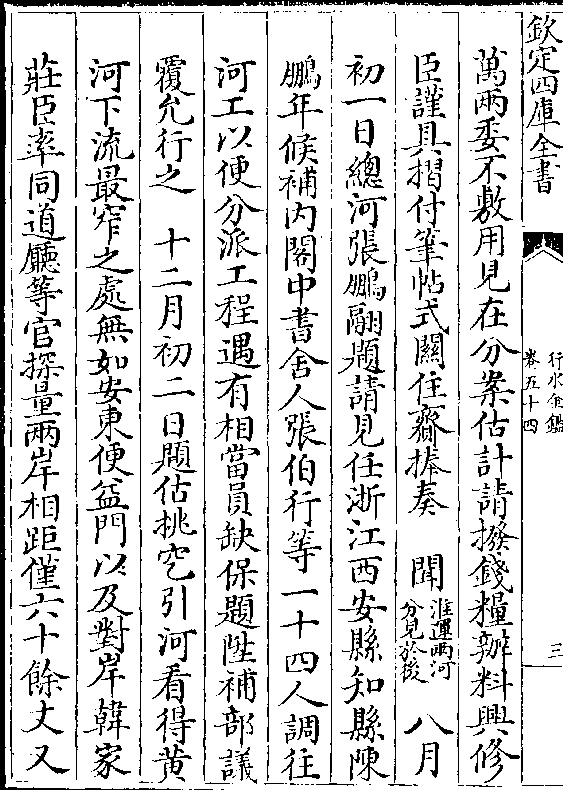 欽定四庫全書
行水金鑑
卷五十四
三
萬兩委不敷用見在分案估計請撥錢糧辦料興修
臣謹具摺付筆帖式關住齎捧奏　聞淮運兩河分見於後　八月
初一日總河張鵬翮題請見任浙江西安縣知縣陳
鵬年候補內閣中書舍人張伯行等一十四人調往
河工以便分派工程遇有相當員缺保題陞補部議
覆允行之　十二月初二日題估挑空引河看得黄
河下流最窄之處無如安東便益門以及對岸韓家
莊臣率同道廳等官探量兩岸相距僅六十餘丈又